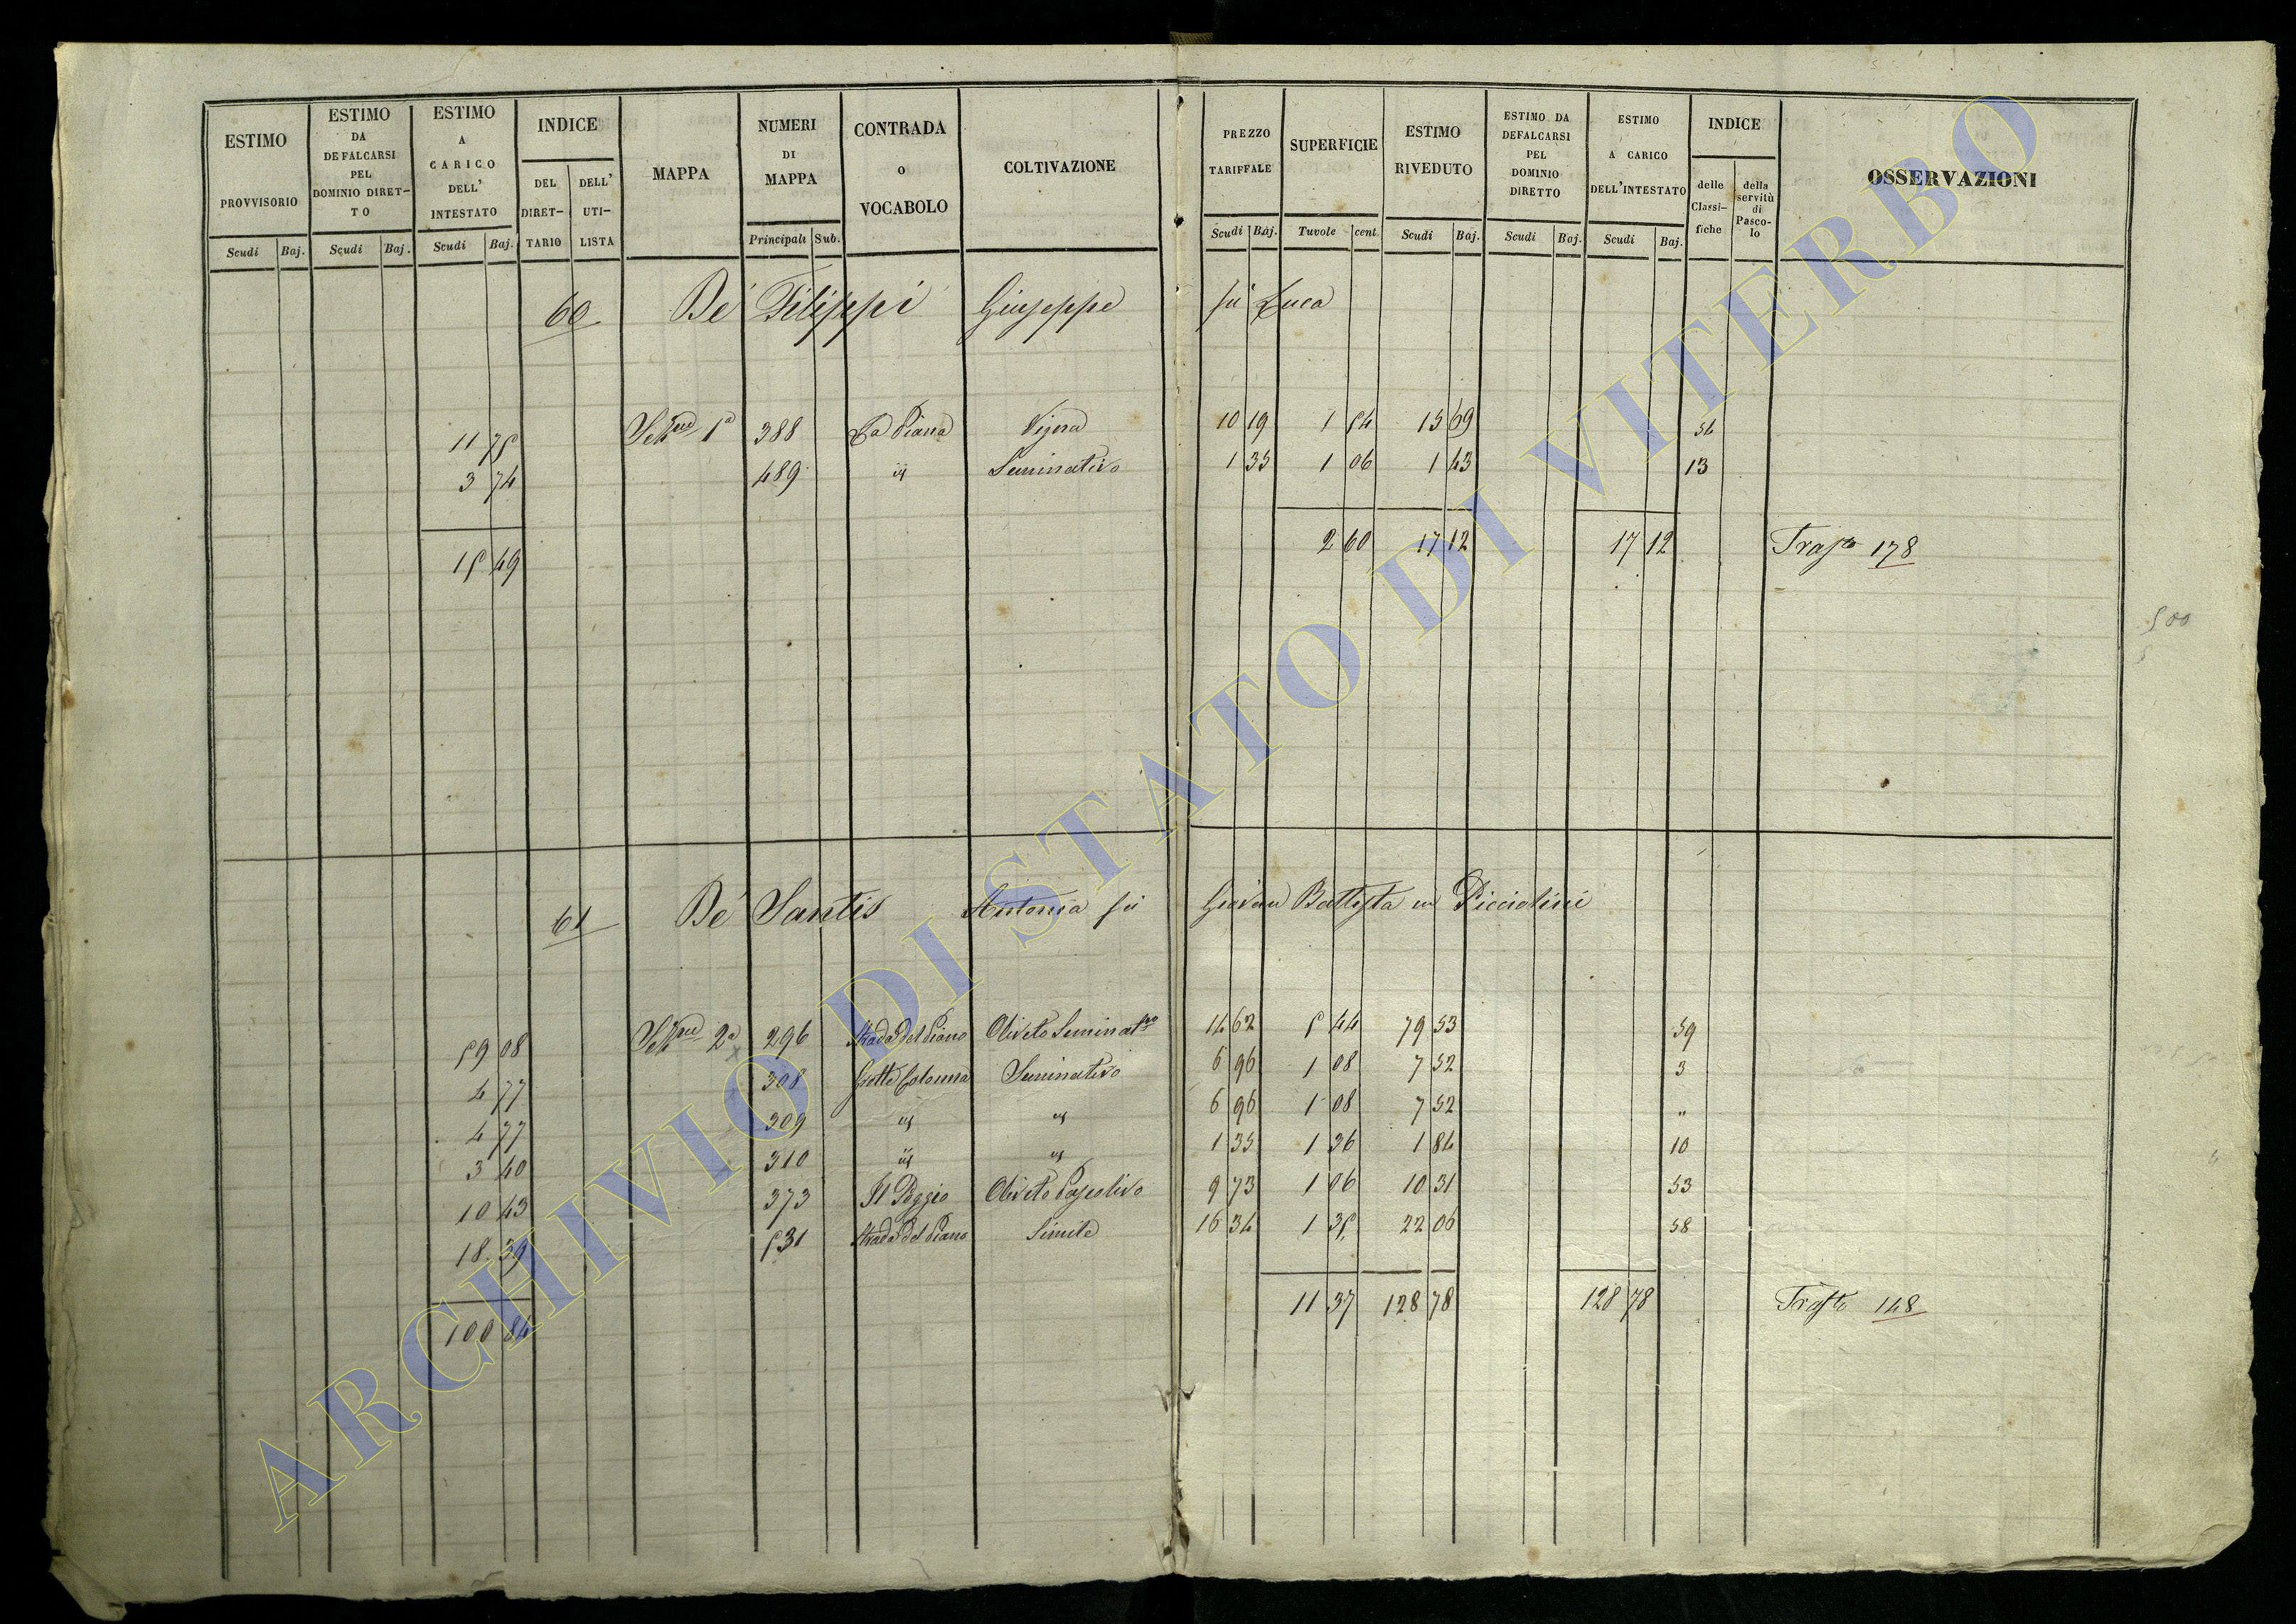 ESTIMO PROVVISORIO
Scudi Baj.
ESTIMO DA DEFALCARSI PEL DOMINIO DIRET-TO
Scudi Baj.
ESTIMO A CARICO DELL' INTESTATO
Scudi Baj.
INDICE
DEL DIRET-TARIO
DELL' UTI-LISTA
MAPPA
NUMERI DI MAPPA
Principali Sub.
CONTRADA o VOCABOLO
COLTIVAZIONE
PREZZO TARIFFALE
Scudi Baj.
SUPERFICIE
Tavole cent.
ESTIMO RIVEDUTO
Scudi Baj.
ESTIMO DA DEFALCARSI PEL DOMINIO DIRETTO
Scudi Baj.
ESTIMO A CARICO DELL'INTESTATO
Scudi Baj.
INDICE
delle Classi-fiche
della servitù di Pasco-lo
OSSERVAZIONI
60 De Filippi Giuseppe fu Luca
11 75 Sezne 1a 388 La Piana Vigna 10 19 1 54 15 69 54
3 74 489 " Seminativo 1 35 1 06 1 43 13
15 49 2 60 17 12 17 12 Traspto 178
61 De Santis Antonia fu Giovan Battista in Picciolini
59 08 Sezne 2a 296 Strada del Piano Oliveto Seminatvo 14 62 5 44 79 53 59
4 77 308 Grotte Colonna Seminativo 6 96 1 08 7 52 3
4 77 309 " " 6 96 1 08 7 52 "
3 40 310 " " 1 35 1 36 1 84 10
10 43 373 Il Poggio Oliveto Pascolivo 9 73 1 06 10 31 53
18 39 531 Strada del Piano Simile 16 34 1 35 22 06 58
100 84 11 37 128 78 128 78 Traspto 148
500
ARCHIVIO DI STATO DI VITERBO